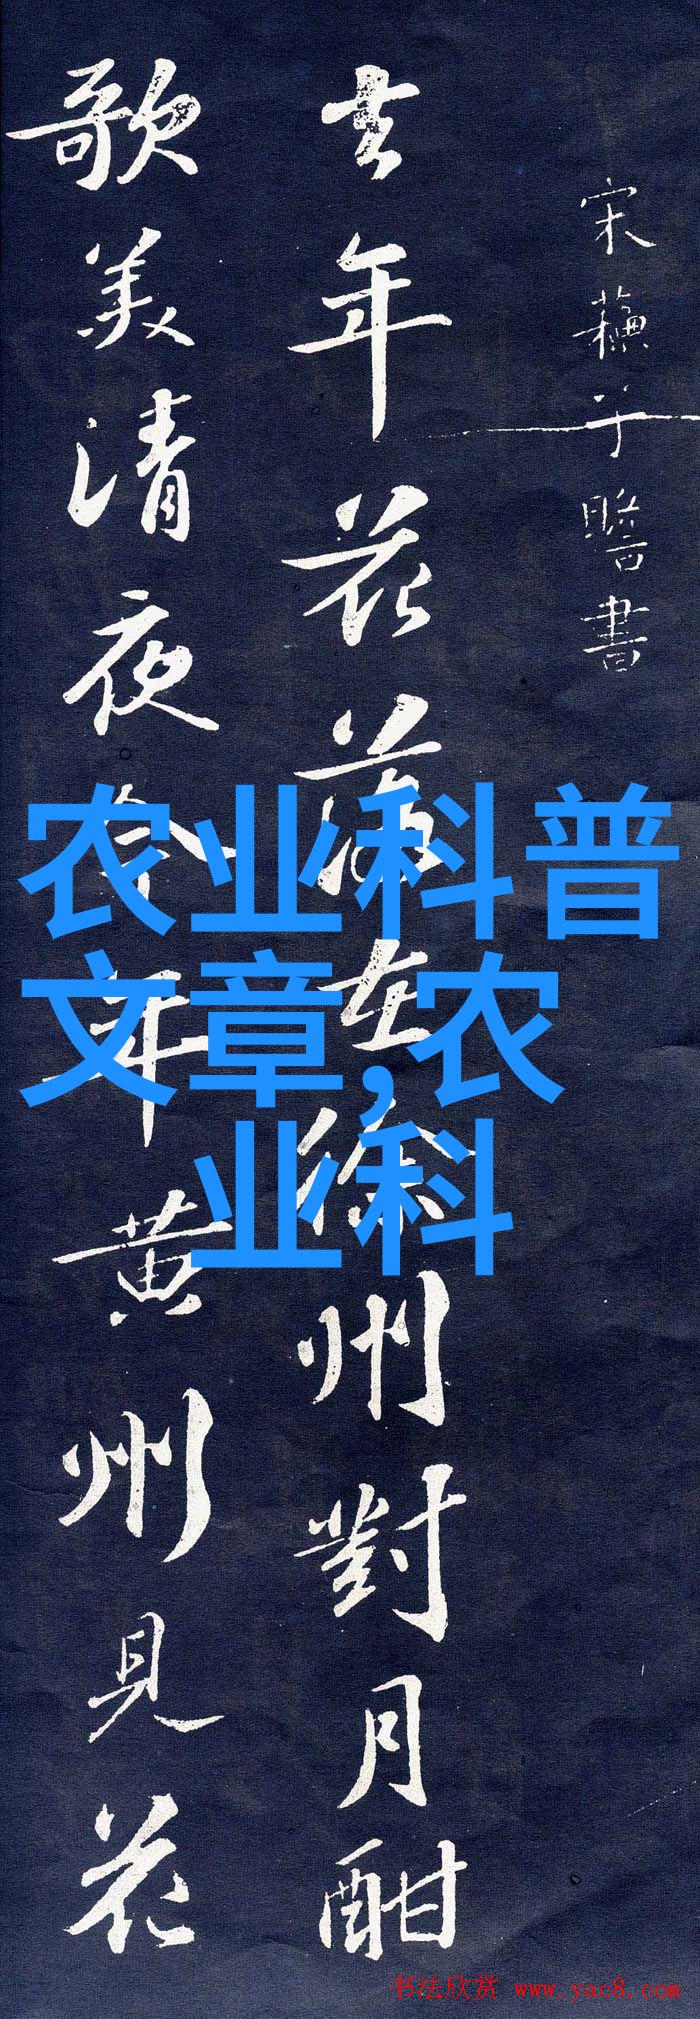 宋蘇子瞻書
去年花落在徐州對月酣
歌美清夜今年黄州見花
农业科普
文章,农
业科
书法欣赏 www.yac8.com